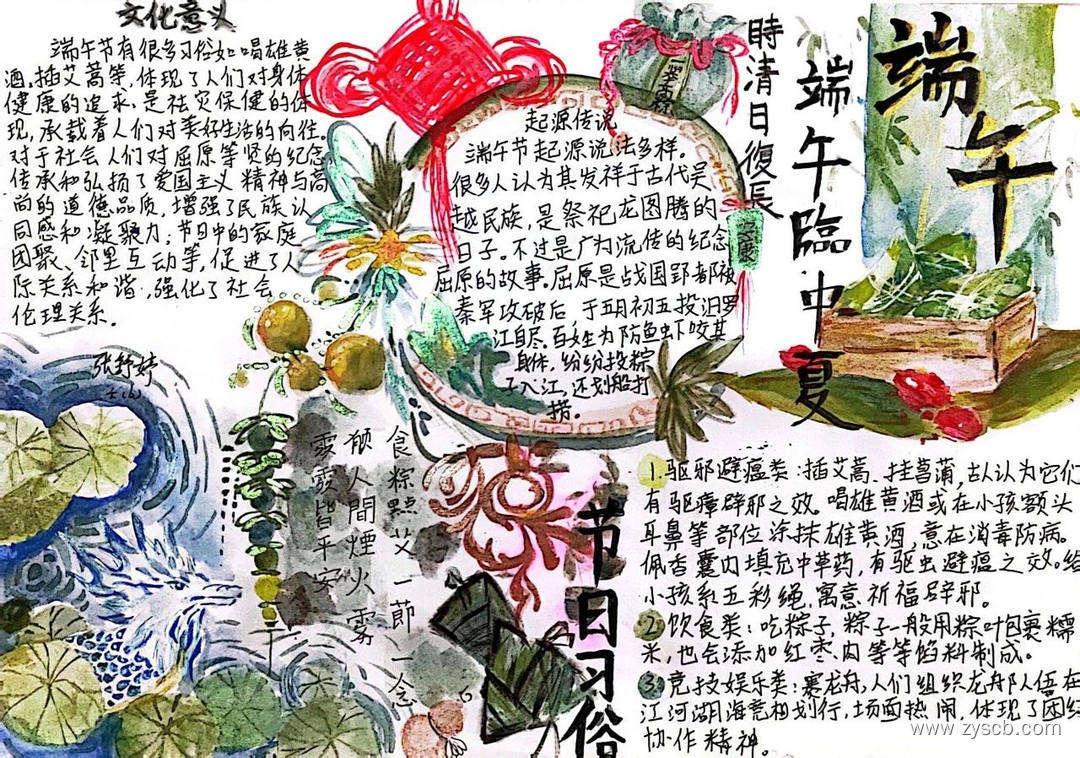 文化意义
端午节有很多习俗如喝雄黄
酒,插艾蒿等,体现了人们对身体
健康的追求,是社灾保健的体
现,承载着人们对美好生活的向往。
对于社会人们对屈原等贤的纪念,
传承和弘扬了爱国主义精神与高
尚的道德品质,增强了民族认
同感和凝聚力,节日中的家庭
团聚、邻里互动等,促进了人
际关系和谐,强化了社会
伦理关系。
起源传说
端午节起源说法多样。
很多人认为其发祥于古代吴
越民族,是祭祀龙图腾的
日子。不过是广为流传的纪念
屈原的故事。屈原是战国郢都被
秦军攻破后,于五月初五投汨罗
江自尽,百姓为防鱼虾咬其
身体,纷纷投粽
子入江,还划船打
捞。
時清日復長
端午臨中夏
端午
安康
食粽點艾一節一念
顧人間煙火雰
雰雰皆平安
节日习俗
1.驱邪避瘟类:插艾蒿、挂菖蒲,古人认为它们
有驱瘴辟邪之效。喝雄黄酒或在小孩额头
耳鼻等部位涂抹雄黄酒,意在消毒防病。
佩香囊内填充中草药,有驱虫避瘟之效。给
小孩系五彩绳,寓意祈福辟邪。
2.饮食类:吃粽子,粽子一般用粽叶包裹糯
米,也会添加红枣、肉等等馅料制成。
3.竞技娱乐类:赛龙舟,人们组织龙舟队伍在
江河湖海竞相划行,场面热闹,体现了团结
协作精神。
www.zyscb.com